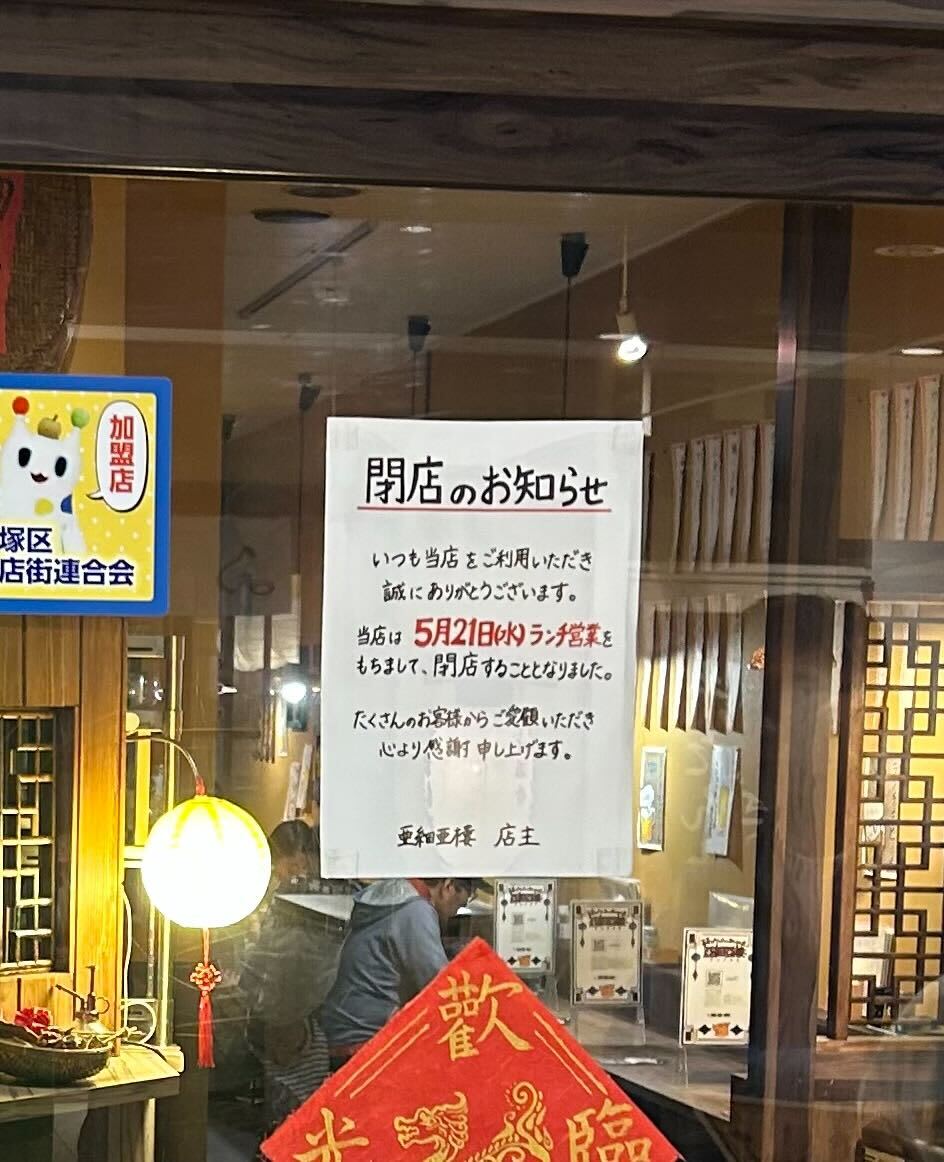 加盟店
塚区
店街連合会
閉店のお知らせ
いつも当店をご利用いただき
誠にありがとうございます。
当店は 5月21日(水)ランチ営業を
もちまして、閉店することとなりました。
たくさんのお客様からご愛顧いただき
心より感謝申し上げます。
亜細亜樓 店主
歡
光臨